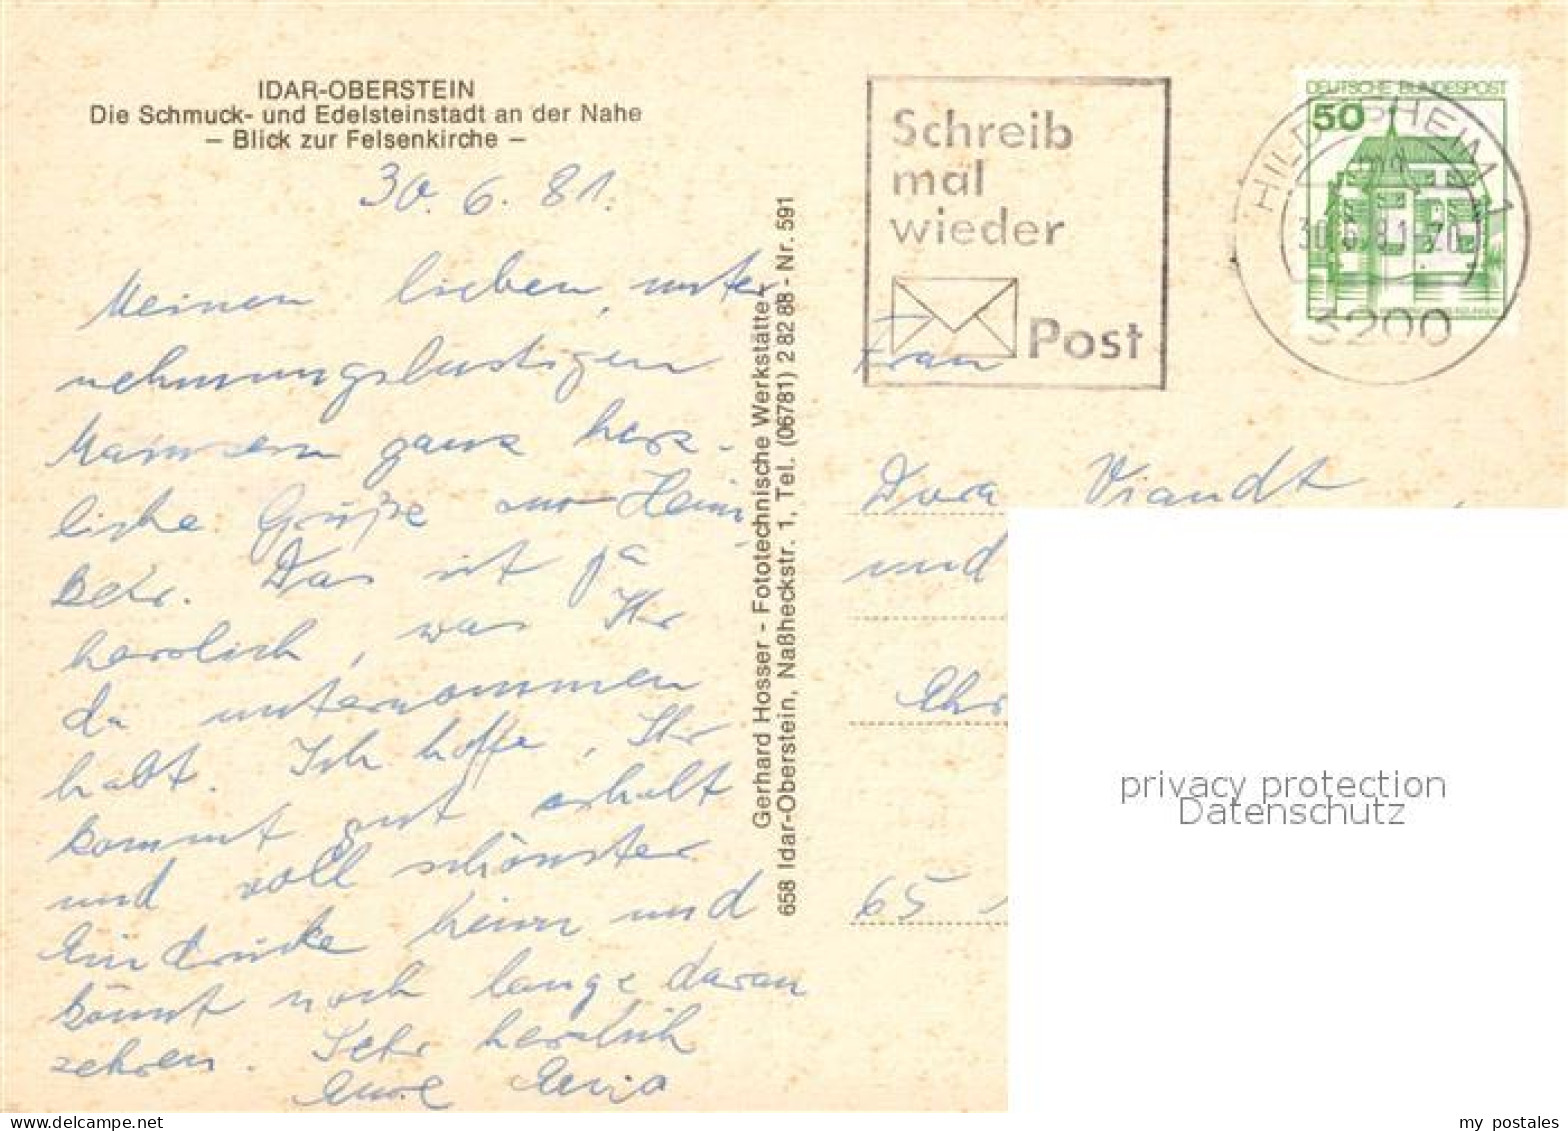 IDAR-OBERSTEIN
Die Schmuck- und Edelsteinstadt an der Nahe
– Blick zur Felsenkirche –
30. 6. 81.
Meinen lieben, unter
nehmungslustigen
ganz herz-
liche Grüße zur Heim,
Das ist ja
herrlich, was Ihr
da unternommen
habt. Ich hoffe, Ihr
kommt gut erholt
und voll schönster
Eindrücke heim und
könnt noch lange daran
zehren. Sehr herzlich
Eure
Gerhard Hosser - Fototechnische Werkstätte
658 Idar-Oberstein, Naßheckstr. 1, Tel. (06781) 2 82 88 - Nr. 591
Schreib
mal
wieder
Post
DEUTSCHE BUNDESPOST
50
HILDESHEIM 1
30.6.81-20
3200
Frau
Dora Viandt
und
65
privacy protection
Datenschutz
my postales